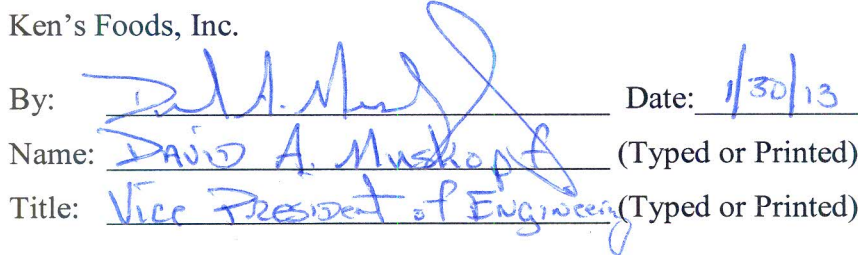 Ken's Foods, Inc.
By: Date: 1/30/13
Name: DAVID A. Muskopf (Typed or Printed)
Title: Vice PRESIDENT of ENGINEERING (Typed or Printed)